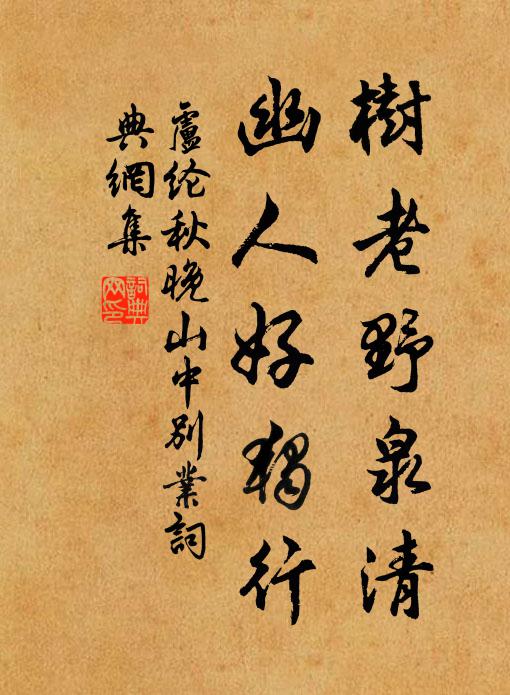 樹老野泉清
幽人好獨行
盧纶秋晚山中別業詞
典網集
詞典
网印